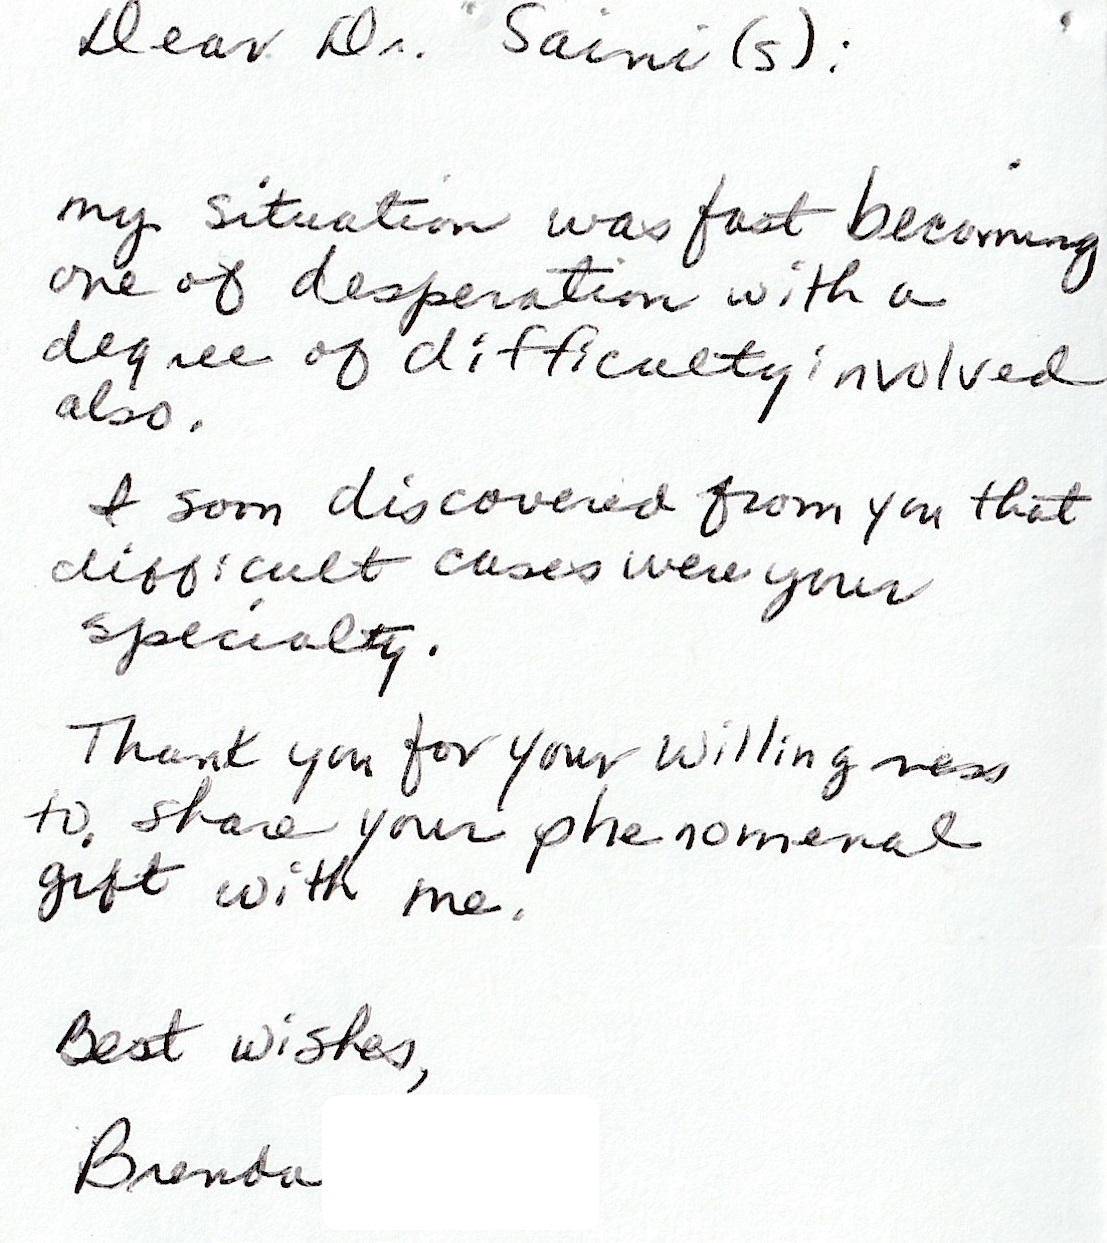 Dear Dr. Saini(s):
my situation was fast becoming
one of desperation with a
degree of difficulty involved
also.
I soon discovered from you that
difficult cases were your
specialty.
Thank you for your willingness
to share your phenomenal
gift with me.
Best wishes,
Brenda